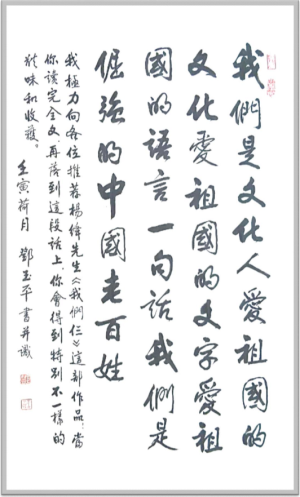 我們是文化人愛祖國的
文化愛祖國的文字愛祖
國的語言一句話我們是
倔強的中國老百姓
我極力向各位推荐楊絳先生《我們仨》這部作品，當
你讀完全文，再落到這段話上，你會得到特别不一樣的
玩味和收獲。
壬寅荷月 鄧玉平書并識